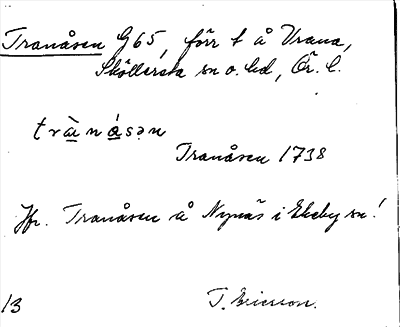 Tranåsen G65, förr t å Vrana,
Sköllersta sn o. hd, Ör. l.
tràn á̱sən
Tranåsen 1738
Jfr. Tranåsen å Nynäs i Ekeby sn!
13 T. Ericsson.